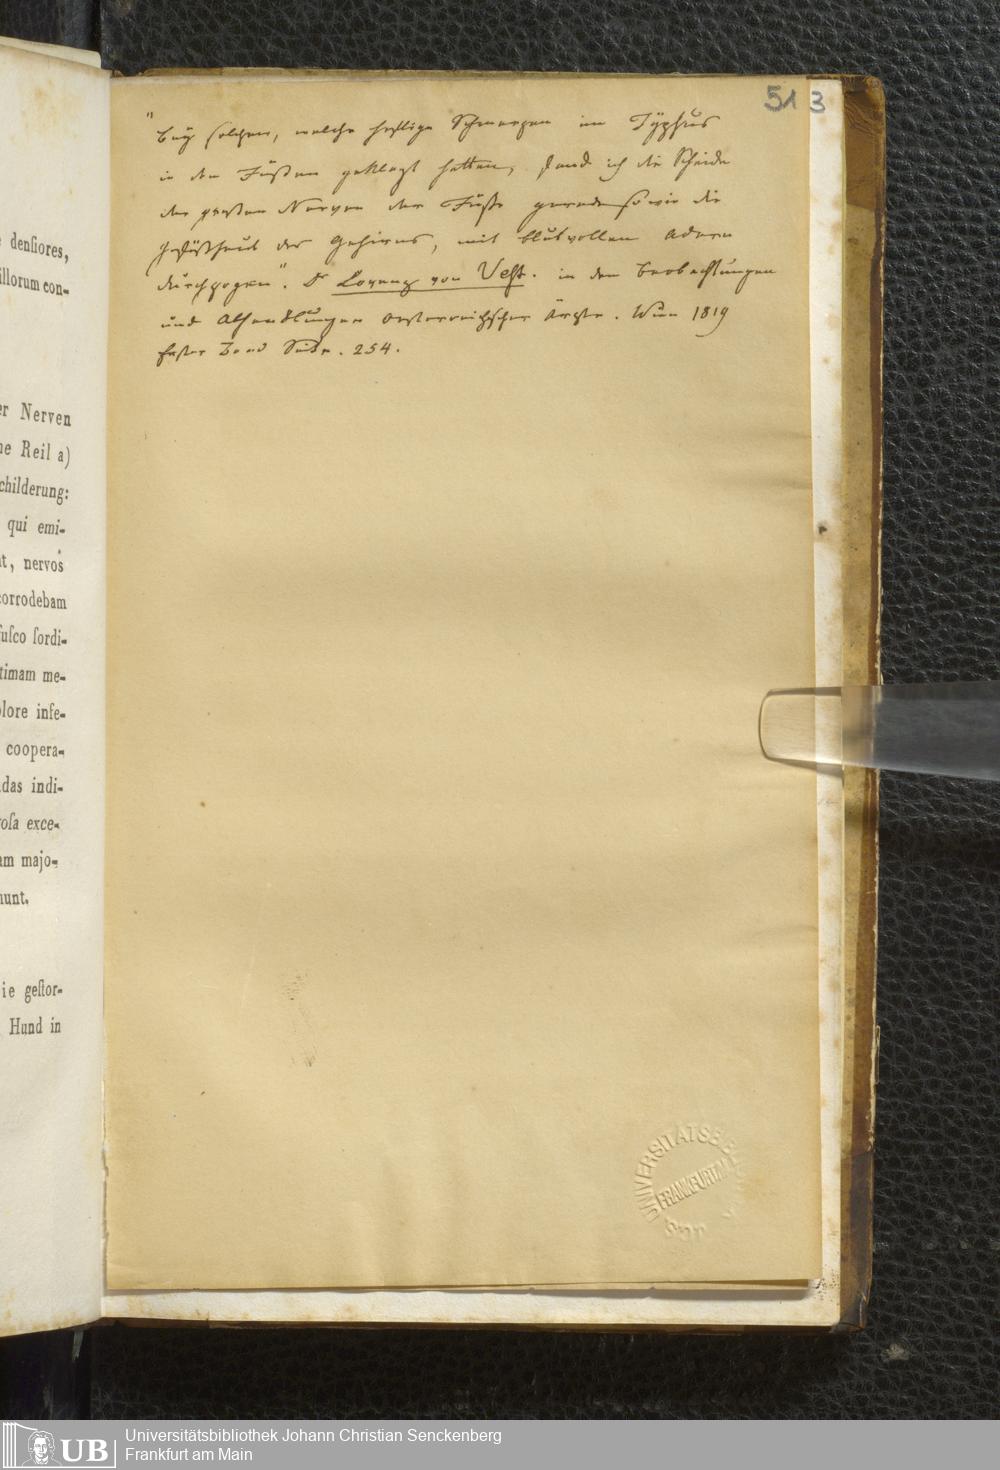 densiores,
illorum con-
er Nerven
ne Reil a)
childerung:
qui emi-
nt, nervos
corrodebam
fusco sordi-
timam me-
olore infe-
coopera-
das indi-
rosa exce-
am majo-
nunt.
ie gestor-
Hund in
513
"Bey solchen, welche heftige Schmerzen im Typhus
in den Füßen geklagt hatten, fand ich die Scheide
der großen Nerven der Füße geradeso wie die
Gefäßhaut des Gehirns, mit blutvollen Adern
durchzogen". Dr Lorenz von Vest. in den Beobachtungen
und Abhandlungen oesterreichischer Ärzte. Wien 1819
Erster Band Seite. 254.
UNIVERSITÄTSBIB
FRANKFURT A. M.
UB
Universitätsbibliothek Johann Christian Senckenberg
Frankfurt am Main